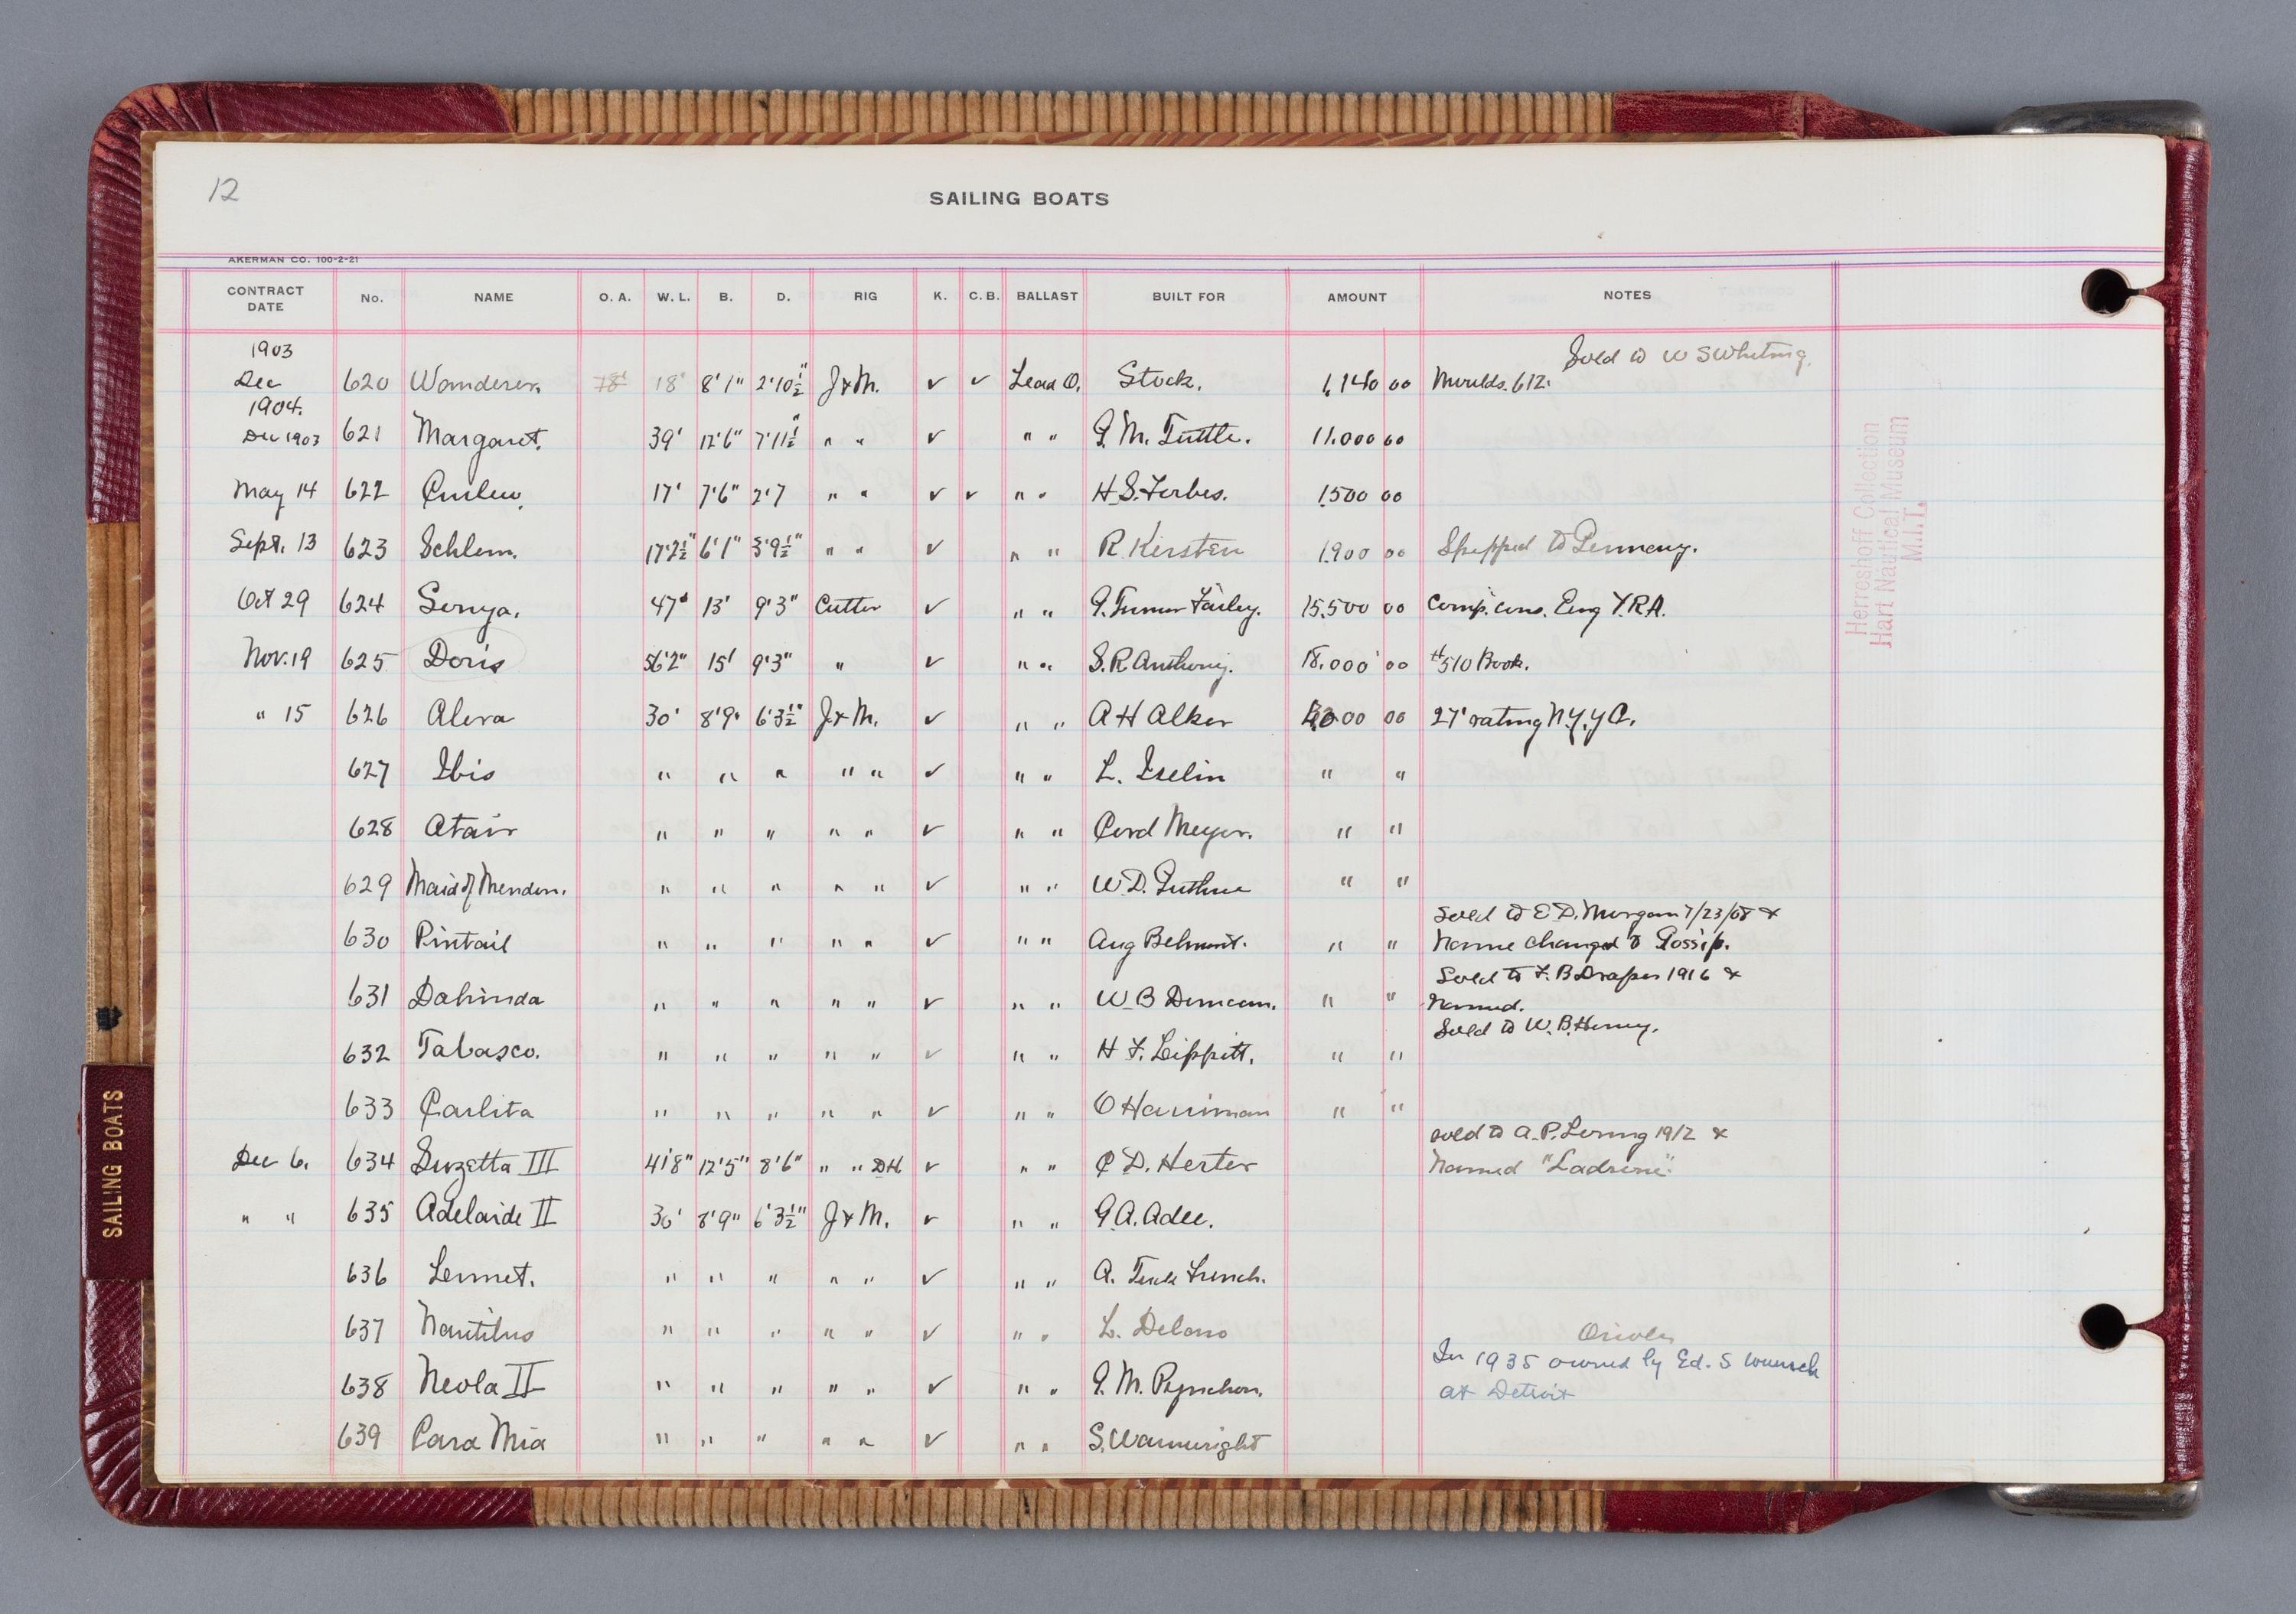 12
SAILING BOATS
AKERMAN CO. 100-2-21
CONTRACT DATE No. NAME O. A. W. L. B. D. RIG K. C. B. BALLAST BUILT FOR AMOUNT NOTES
1903 Sold to W S Whiting.
Dec 620 Wanderer 18' 18' 8'1" 2'10½" J & M. ✓ ✓ Lead O. Stock. 1,140 00 Moulds. 612.
1904.
Dec 1903 621 Margaret. 39' 12'6" 7'11½" " " ✓ " " M. Tuttle. 11.000 00
May 14 622 Curlew. 17' 7'6" 2'7 " " ✓ ✓ " " H.S. Forbes. 1500 00
Sept. 13 623 Schlem. 17'2½" 6'1" 3'9½" " " ✓ " " R. Kirsten 1900 00 Shipped to Germany.
Oct 29 624 Sonya. 47' 13' 9'3" Cutter ✓ " " Turner Farley. 15.500 00 Comp. cons. Eng Y.R.A.
Nov. 19 625 Doris 56'2" 15' 9'3" " ✓ " " S.R. Anthony. 18.000 00 #510 Book.
" 15 626 Alera 30' 8'9" 6'3½" J & M. ✓ " " A H Alker 00 00 27' rating N.Y.Y C.
627 Ibis " " " " " ✓ " " L. Iselin " "
628 Atair " " " " " ✓ " " Cord Meyer. " "
629 Maid of Mendon. " " " " " ✓ " " W.D. Guthrie " "
Sold to E D. Morgan 7/23/08 &
630 Pintail " " " " " ✓ " " Aug Belmont. " " Name changed to Gossip.
Sold to F. B Draper 1916 &
631 Dahinda " " " " " ✓ " " W B Duncan. " " Named.
Sold to W. B. Henry.
632 Tabasco. " " " " " ✓ " " H F. Lippitt. " "
633 Carlita " " " " " ✓ " " O Harriman " "
sold to A. P. Loring 1912 &
Dec 6. 634 Suzetta III 41'8" 12'5" 8'6" " " DH ✓ " " D. Herter Named "Ladrone".
" " 635 Adelaide II 30' 8'9" 6'3½" J & M. ✓ " " G.A. Adee.
636 Linnet. " " " " " ✓ " " A. Tuck French.
637 Nautilus " " " " " ✓ " " L. Delano
Oriole
In 1935 owned by Ed. S Wunsch
638 Neola II " " " " " ✓ " " M. Pynchon. at Detroit
639 Cara Mia " " " " " ✓ " " S. Wainwright
Herreshoff Collection
Hart Nautical Museum
M.I.T.
SAILING BOATS